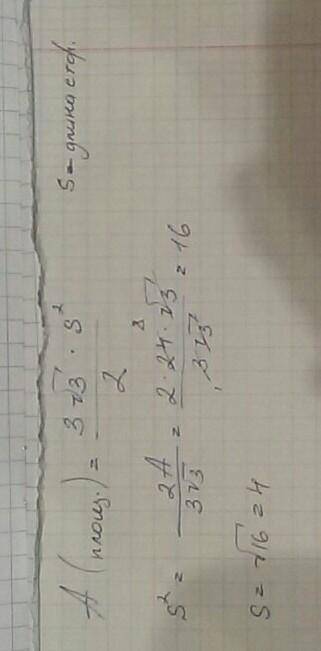 A (площ.) = 3√3 · S² / 2 S = длина стор.
S² = 2A / 3√3 = 2 · 24 · √3 / 3√3 = 16
8
1
S = √16 = 4